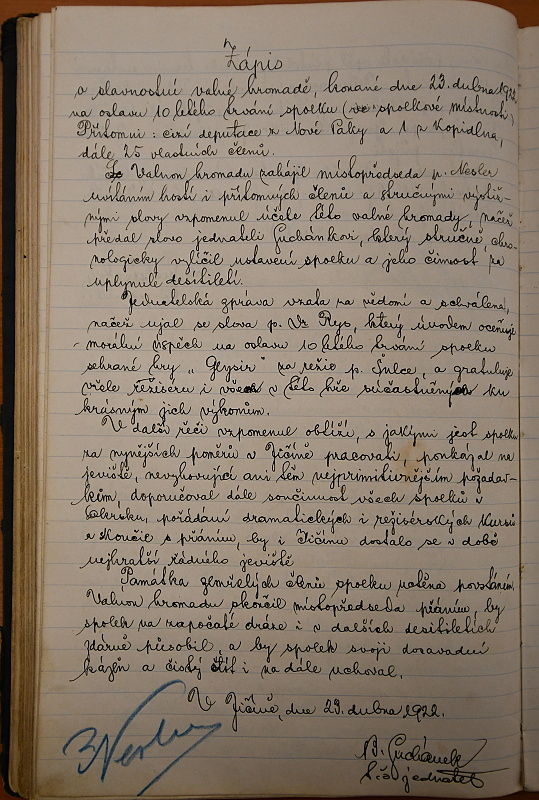 Zápis
o slavnostní valné hromadě, konané dne 23. dubna 1922
na oslavu 10 letého trvání spolku (ve spolkové místnosti)
Přítomni: cizí deputace z Nové Paky a 1 z Kopidlna,
dále 25 vlastních členů.
Valnou hromadu zahájil místopředseda p. Nesler
uvítáním hostí i přítomných členů a stručnými výstiž-
nými slovy vzpomenul účele této valné hromady, načež
předal slovo jednateli Suchánkovi, který stručně, chro-
nologicky vylíčil ustavení spolku a jeho činnost za
uplynulé desítiletí.
Jednatelská zpráva vzata na vědomí a schválena,
načež ujal se slova p. Vr. Reys, který úvodem oceňuje
morální úspěch na oslavu 10 letého trvání spolku
sehrané hry „Geysir" za režie p. Šulce, a gratuluje
vřele režiséru i všem v této hře súčastněným ku
krásným jich výkonům.
V další řeči vzpomenul obtíží, s jakými jest spolku
za nynějších poměrů v Jičíně pracovati, poukázal na
jeviště, nevyhovující ani těm nejprimitivnějším požadav-
kům, doporučoval dále součinnost všech spolků v
okrsku, pořádání dramatických i režisérských kursů
a skončil s přáním, by i Jičínu dostalo se v době
nejkratší řádného jeviště
Památka zemřelých členů spolku uctěna povstáním.
Valnou hromadu skončil místopředseda přáním, by
spolek na započaté dráze i v dalších desítiletích
zdárně působil, a by spolek svoji dosavadní
kázeň a čistý štít i na dále uchoval.
V Jičíně, dne 23. dubna 1922.
Nesler
B. Suchánek
t. č. jednatel